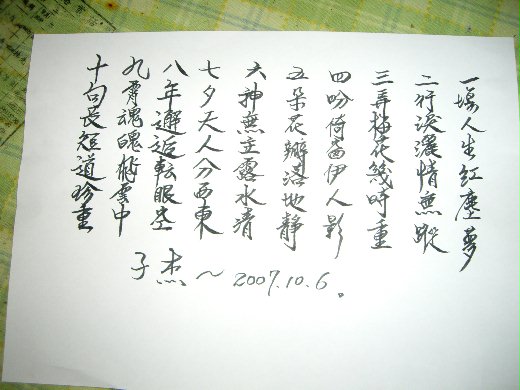 一場人生紅塵夢
二行淚灑情無蹤
三弄梅花幾時重
四吩倚窗伊人影
五朵花瓣落地靜
六神無主露水清
七夕天人分西東
八年邂逅轉眼空
九霄魂魄銷雲中
十句長短道珍重
子杰～2007.10.6。